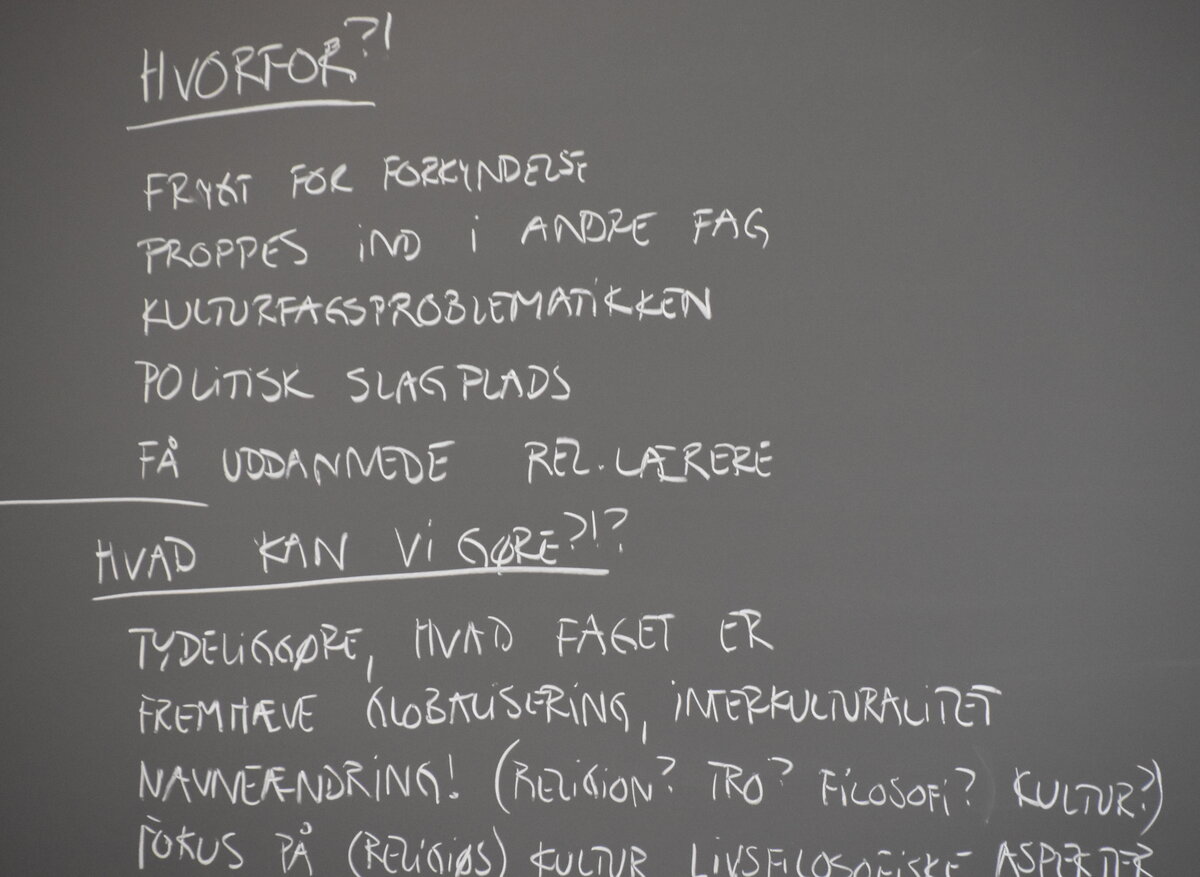 HVORFOR?!
FRYGT FOR FORKYNDELSE
PROPPES IND I ANDRE FAG
KULTURFAGSPROBLEMATIKKEN
POLITISK SLAGPLADS
FÅ UDDANNEDE REL. LÆRERE
HVAD KAN VI GØRE?!?
TYDELIGGØRE, HVAD FAGET ER
FREMHÆVE GLOBALISERING, INTERKULTURALITET
NAVNEÆNDRING! (RELIGION? TRO? FILOSOFI? KULTUR?)
FOKUS PÅ (RELIGIØS) KULTUR LIVSFILOSOFISKE ASPEKTER